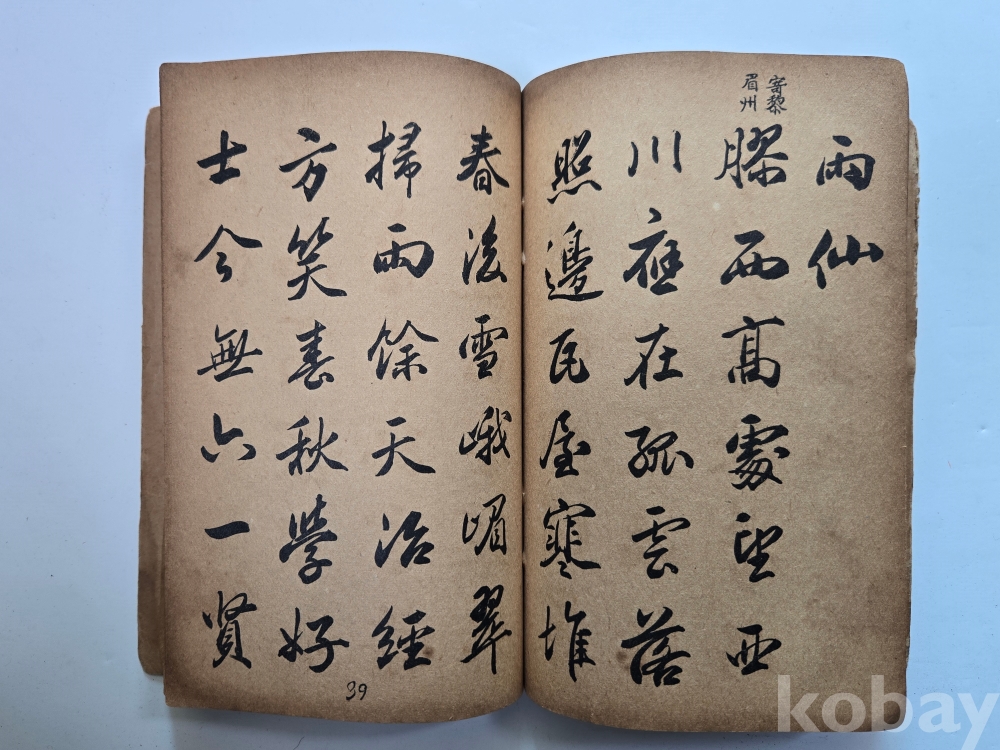 雨仙
寄黎
眉州
膠西高處望西
川應在孤雲落
照邊瓦屋寒堆
春後雪峨嵋翠
掃雨餘天治經
方笑春秋學好
士今無六一賢
39
kobay